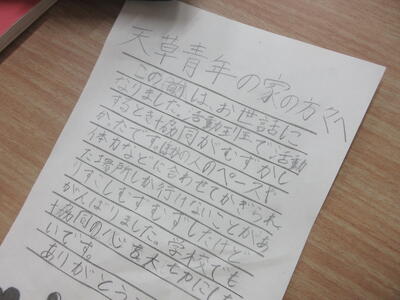 天草青年の家の方々へ
この前は、お世話に
なりました。活動班で活動
するとき協同がむずかし
かったです。ほかの人のペースや
体力などに合わせてかぎられ
た場所しか行けないことがあ
りすこしむずむずしたけど
がんばりました。学校でも
協同の心を大切にした
いです。
ありがとう